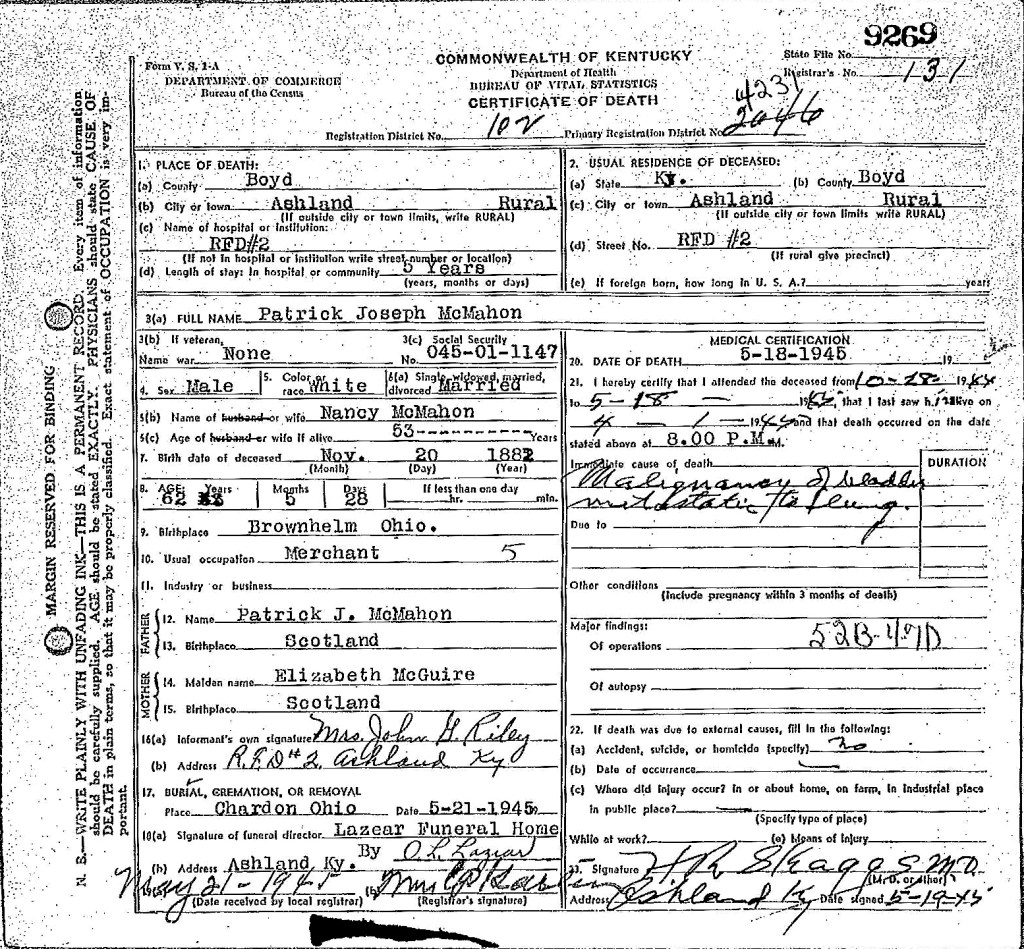 9269
Form V. S. 1-A
DEPARTMENT OF COMMERCE
Bureau of the Census
COMMONWEALTH OF KENTUCKY
Department of Health
BUREAU OF VITAL STATISTICS
CERTIFICATE OF DEATH
State File No.
Registrar's No. 131
4231
Registration District No. 102 Primary Registration District No. 2046
MARGIN RESERVED FOR BINDING
N. B.—WRITE PLAINLY WITH UNFADING INK—THIS IS A PERMANENT RECORD. Every item of information
should be carefully supplied. AGE should be stated EXACTLY. PHYSICIANS should state CAUSE OF
DEATH in plain terms, so that it may be properly classified. Exact statement of OCCUPATION is very im-
portant.
1. PLACE OF DEATH:
(a) County Boyd
(b) City or town Ashland Rural
(If outside city or town limits, write RURAL)
(c) Name of hospital or institution:
RFD#2
(If not in hospital or institution write street number or location)
(d) Length of stay: In hospital or community 5 Years
(years, months or days)
2. USUAL RESIDENCE OF DECEASED:
(a) State Ky. (b) County Boyd
(c) City or town Ashland Rural
(If outside city or town limits write RURAL)
(d) Street No. RFD #2
(If rural give precinct)
(e) If foreign born, how long in U. S. A.? years
3(a) FULL NAME Patrick Joseph McMahon
3(b) If veteran,
Name war None
3(c) Social Security
No. 045-01-1147
4. Sex Male
5. Color or
race White
6(a) Single, widowed, married,
divorced Married
5(b) Name of husband or wife Nancy McMahon
5(c) Age of husband or wife if alive 53---------- Years
7. Birth date of deceased Nov. 20 1882
(Month) (Day) (Year)
8. AGE: Years Months Days If less than one day
62 5 28 hr. min.
9. Birthplace Brownhelm Ohio.
10. Usual occupation Merchant 5
11. Industry or business
FATHER
12. Name Patrick J. McMahon
13. Birthplace Scotland
MOTHER
14. Maiden name Elizabeth McGuire
15. Birthplace Scotland
16(a) Informant's own signature Mrs. John G. Riley
(b) Address R.F.D #2 Ashland Ky
17. BURIAL, CREMATION, OR REMOVAL
Place Chardon Ohio Date 5-21-1945
18(a) Signature of funeral director Lazear Funeral Home
By O. L. Lazear
(b) Address Ashland Ky.
May 21-1945
(Date received by local registrar) (Registrar's signature)
MEDICAL CERTIFICATION
20. DATE OF DEATH 5-18-1945 19
21. I hereby certify that I attended the deceased from 10-28- 1944
to 5-18- 19, that I last saw h alive on
4-1- 19 and that death occurred on the date
stated above at 8.00 P.M. M.
Immediate cause of death DURATION
Malignancy of bladder
metastatic to lung.
Due to
Other conditions
(Include pregnancy within 3 months of death)
Major findings:
Of operations 52B-47D
Of autopsy
22. If death was due to external causes, fill in the following:
(a) Accident, suicide, or homicide (specify) no
(b) Date of occurrence
(c) Where did injury occur? In or about home, on farm, in industrial place
in public place?
(Specify type of place)
While at work? (e) Means of injury
23. Signature H R Skaggs M.D.
(M. D. or other)
Address Ashland Ky Date signed 5-19-45